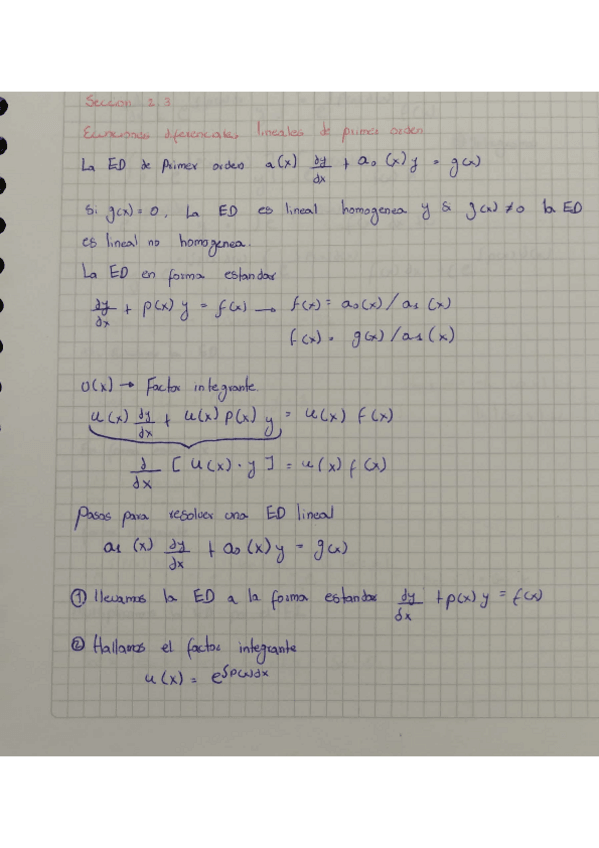 Sección 2.3
Ecuaciones diferenciales lineales de primer orden
La ED de Primer orden a(x) dy/dx + a₀(x)y = g(x)
Si g(x) = 0, La ED es lineal homogenea y si g(x) ≠ 0 la ED
es lineal no homogenea.
La ED en forma estandar
dy/dx + p(x) y = f(x) → f(x) = a₀(x) / a₁(x)
f(x) = g(x) / a₁(x)
U(x) → Factor integrante.
u(x) dy/dx + u(x) p(x) y = u(x) f(x)
d/dx [u(x) · y] = u(x) f(x)
Pasos para resolver una ED lineal
a₁(x) dy/dx + a₀(x) y = g(x)
① llevamos la ED a la forma estandar dy/dx + p(x) y = f(x)
② Hallamos el factor integrante
u(x) = e^∫p(x)dx